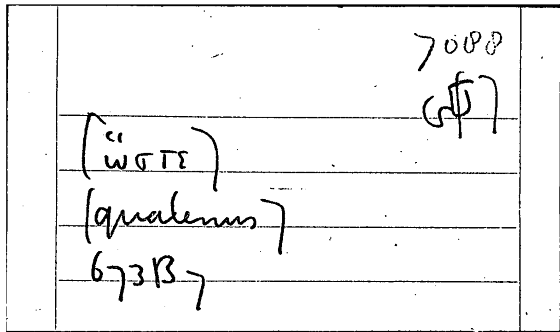 7088
(ὥστε)
(quatenus)
673B7